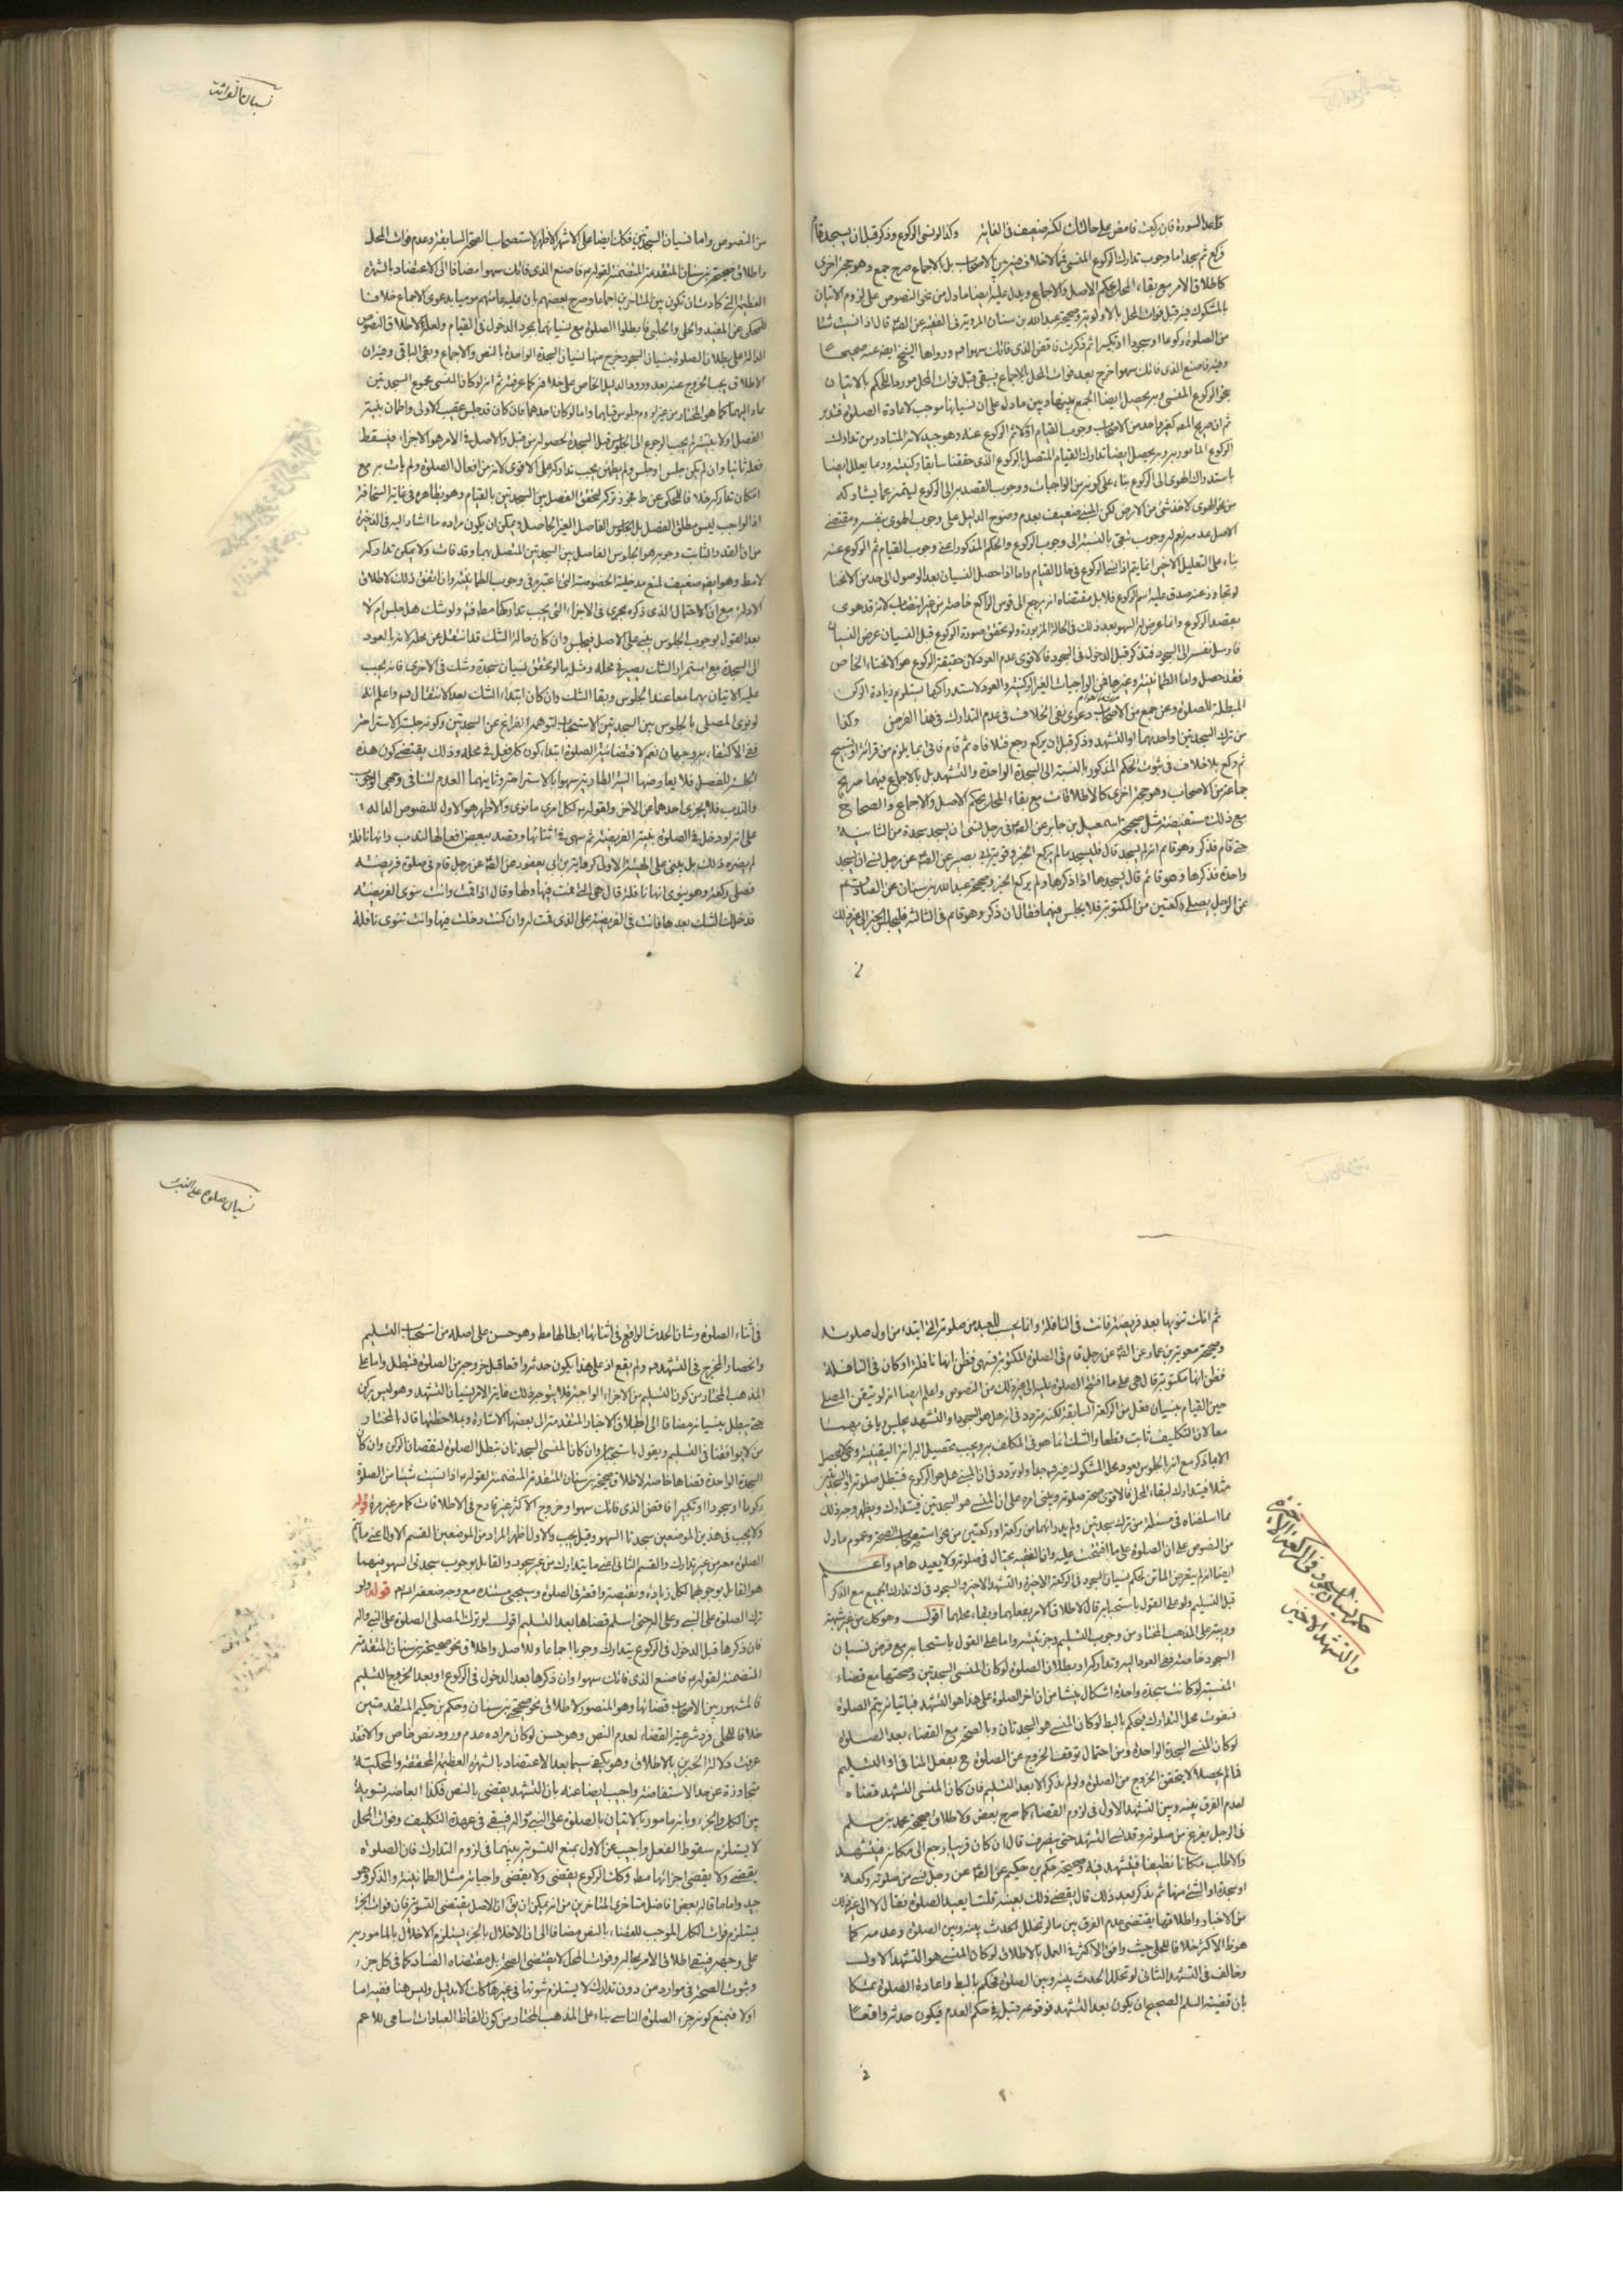 نسيان القرائت
قاعد السورة فان ركعت فامض على حالك لكنه ضعيف في الغاية وكذا لو نسى الركوع وذكر قبل ان يسجد قام
فركع ثم سجد اما وجوب تدارك الركوع المنسى فمما لا خلاف فيه بين الاصحاب بل بالاجماع صرح جمع وهو حجة اخرى
كاطلاق الامر مع بقاء المحل بحكم الاصل والاجماع ويدل عليه ايضا ما دل من نحو النصوص على لزوم الاتيان
بالمشكوك فيه قبل فوات المحل بالاولوية وصحيحة عبد الله بن سنان المروية في الفقيه عن الصم قال اذا نسيت شيئا
من الصلوة ركوعا او سجودا او تكبيرا ثم ذكرت فاقض الذى فاتك سهوا ورواها الشيخ ايضا عنه صحيحا
وفيه فاصنع الذى فاتك سهوا خرج بعد فوات المحل بالاجماع فيبقى قبل فوات المحل موردا للحكم بالاتيان
بنحو الركوع المنسى وبه يحصل ايضا الجمع بينها وبين ما دل على ان نسيانها موجب لاعادة الصلوة فتدبر
ثم ان صريح المصه كغير واحد من الاصحاب وجوب القيام اولا ثم الركوع عنه وهو جيد لانه المتبادر من تدارك
الركوع المامور به وبه يحصل ايضا تدارك القيام المتصل بالركوع الذى حققنا سابقا ركنيته وربما يعلل ايضا
باستدراك الهوى الى الركوع بناء على كونه من الواجبات ووجوب القصد به الى الركوع ليتميز عما يشاركه
من نحو الهوى لاخذ شئ من الارض لكن المبنى ضعيف بعدم وضوح الدليل على وجوب الهوى بنفسه ومقتضى
الاصل عدمه نعم له وجوب تبعى بالنسبة الى وجوب الركوع والحكم المذكور اعنى وجوب القيام ثم الركوع عنه
بناء على التعليل الاخير انما يتم اذا نسى الركوع في حال القيام واما اذا حصل النسيان بعد الوصول الى حد من الانحنا
لو تجاوز عنه صدق عليه اسم الركوع فلا بل مقتضاه انه يرجع الى قوس الراكع خاصة من غير انتصاب لانه قد هوى
بقصد الركوع وانما عرض له السهو بعد ذلك في الحالة المزبورة ولو تحقق صورة الركوع قبل النسيان عرض النسيان
فارسل نفسه الى السجود فتذكر قبل الدخول في السجود فالاقوى عدم العود لان حقيقة الركوع هو الانحناء الخاص
فقد حصل واما الطمانينة وغيرها فهى الواجبات الغير الركنية والعود لاستدراكها يستلزم زيادة الركن
المبطلة للصلوة وعن جمع من الاصحاب دعوى نفى الخلاف في عدم التدارك في هذا الفرض وكذا
من ترك السجدتين او احديهما او التشهد وذكر قبل ان يركع رجع فتلافاه ثم قام فاتى بما يلزم من قرائة او تسبيح
ثم ركع بلا خلاف في ثبوت الحكم المذكور بالنسبة الى السجدة الواحدة والتشهد بل بالاجماع فيهما صرح
جماعة من الاصحاب وهو حجة اخرى كالاطلاقات مع بقاء المحل بحكم الاصل والاجماع والصحاح
مع ذلك مستفيضة مثل صحيحة اسمعيل بن جابر عن الصم في رجل نسى ان يسجد سجدة من الثانية
حتى قام فذكر وهو قائم انه لم يسجد قال فليسجد ما لم يركع الخبر وموثقة ابى بصير عن الصم عن رجل نسى ان يسجد
واحدة فذكرها وهو قائم قال يسجدها اذا ذكرها ولم يركع الخبر وصحيحة عبد الله بن سنان عن الصادق عم
عن الرجل يصلى ركعتين من المكتوبة فلا يجلس فيهما فقال ان ذكر وهو قائم في الثالثة فليجلس الخبر الى غير ذلك
من النصوص واما نسيان السجدتين فكك ايضا على الاشهر الاظهر لاستصحاب الصحة السابقة وعدم فوات المحل
واطلاق صحيحة بن سنان المتقدمة المتضمنة لقوله فاصنع الذى فاتك سهوا مضافا الى الاعتضاد بالشهرة
العظيمة التى كادت ان تكون بين المتاخرين اجماعا وصرح بعضهم بان عليه عامتهم موميا بدعوى الاجماع خلافا
للمحكى عن المفيد والحلى والحلبى فابطلوا الصلوة مع نسيانهما بمجرد الدخول في القيام ولعله لاطلاق النصوص
الدالة على بطلان الصلوة بنسيان السجود خرج منها نسيان السجدة الواحدة بالنص والاجماع وبقى الباقى وفيه ان
الاطلاق يجب الخروج عنه بعد ورود الدليل الخاص على خلافه كما عرفته ثم انه لو كان المنسى مجموع السجدتين
عاد اليهما كما هو المختار من غير لزوم جلوس قبلهما واما لو كان احدهما فان كان قد جلس عقيب الاولى واطمان بنية
الفصل او لا بنيته لم يجب الرجوع الى الجلوس قبل السجدة لحصوله من قبل والاصل في الامر هو الاجزاء فيسقط
فعله ثانيا وان لم يكن جلس او جلس ولم يطمئن يجب تداركه على الاقوى لانه من افعال الصلوة ولم يات به مع
امكان تداركه خلافا للمحكى عن ط فجوز تركه لتحقق الفصل بين السجدتين بالقيام وهو بظاهره في غاية السخافة
اذ الواجب ليس مطلق الفصل بل الجلوس الفاصل الغير الحاصل ويمكن ان يكون مراده ما اشار اليه في الذخيرة
من ان القدر الثابت وجوبه هو الجلوس الفاصل بين السجدتين المتصل بهما وقد فات ولا يمكن تداركه
لامط وهو ايضا ضعيف لمنع مدخلية الخصوصية التى اعتبره في وجوب الطمانينة وان اتفق ذلك لاطلاق
الادلة مع ان الاحتمال الذى ذكره يجرى في الاجزاء التى يجب تداركها مط فتدبر ولو شك هل جلس ام لا
بعد القول بوجوب الجلوس بنى على الاصل فيجلس وان كان حالة الشك قد انتقل عن محله لانه بالعود
الى السجدة مع استمرار الشك يصير في محله ومثله ما لو تحقق نسيان سجدة وشك في الاخرى فانه يجب
عليه الاتيان بهما معا عند الجلوس وبقاء الشك وان كان ابتداء الشك بعد الانتقال واعلم انه
لو نوى المصلى بالجلوس بين السجدتين الاستحباب لتوهم الفراغ عن السجدتين وكونه جلسة الاستراحة
ففى الاكتفاء به وجهان نعم لاقتضاء نية الصلوة ابتداء كون كل فعل في محله وذلك يقتضى كون هذه
الجلسة للفصل فلا يعارضها النية الطارية سهوا بالاستراحة وثانيهما العدم لتنافى وجهى الوجوب
والندب فلا يجزى احدهما عن الاخر ولقوله لكل امرئ ما نوى والاظهر هو الاول للنصوص الدالة
على انه لو دخل في الصلوة بنية الفريضة ثم سهى في اثنائها وقصد ببعض افعالها الندب وانها نافلة
لم يضره ذلك بل يبنى على الهيئة الاولى كرواية بن ابى يعفور عن الصم عن رجل قام في صلوة فريضة
فصلى ركعة وهو ينوى انها نافلة قال هى التى قمت فيها ولها وقال اذا قمت وانت تنوى الفريضة
فدخلك الشك بعدها فانت في الفريضة على الذى قمت له وان كنت دخلت فيها وانت تنوى نافلة
نسيان صلوة على النبى
ثم انك تنويها بعد فريضة فانت في النافلة وانما يحسب للعبد من صلوته التى ابتداء من اول صلوته
وصحيحة معوية بن عمار عن الصم عن رجل قام في الصلوة المكتوبة فسهى فظن انها نافلة او كان في النافلة
فظن انها مكتوبة قال هى على ما افتتح الصلوة عليه الى غير ذلك من النصوص واعلم ايضا انه لو تيقن المصلى
حين القيام بنسيان فعل من الركعة السابقة لكنه متردد في انه هل هو السجود او التشهد يجلس وياتى بهما
معا لان التكليف ثابت قطعا والشك انما هو في المكلف به ويجب تحصيل البرائة اليقينية وهى لا تحصل
الا بما ذكر مع انه بالجلوس يعود محل المشكوك فيه ولو تردد في ان المنسى هل هو الركوع فتبطل صلوته او السجدتين
مثلا فيتدارك لبقاء المحل فالاقوى صحة صلوته ويبنى امره على ان المنسى هو السجدتين فيتدارك ويظهر وجه ذلك
مما اسلفناه في مسئلة من ترك سجدتين ولم يدر انهما من ركعة او ركعتين من نحو استصحاب الصحة وعموم ما دل
من النصوص على ان الصلوة على ما افتتحت عليه وان الفقيه يحتال في صلوته ولا يعيدها واعلم
ايضا انه لم يتعرض الماتن بحكم نسيان السجود في الركعة الاخيرة والتشهد الاخير والسجود فيتدارك الجميع مع الذكر
قبل التسليم ولو على القول باستحبابه قال لاطلاق الامر بفعلهما وبقاء محلهما اقول وهو كك من غير شبهة
وريبة على المذهب المختار من وجوب التسليم وجزئيته واما على القول باستحبابه مع فرض نسيان
السجود خاصة ففى العود اليه وتداركه او بطلان الصلوة لو كان المنسى السجدتين وصحتها مع قضاء
المنسية لو كانت سجدة واحدة اشكال ينشا من ان اخر الصلوة على هذا هو التشهد فباتيانه يتم الصلوة
فيفوت محل التدارك فيحكم بالبط لو كان المنسى هو السجدتان وبالصحة مع القضاء بعد الصلوة
لو كان المنسى السجدة الواحدة ومن احتمال توقف الخروج عن الصلوة ح بفعل المنافى او التسليم
فما لم يحصلا لا يتحقق الخروج من الصلوة ولو لم يذكر الا بعد التسليم فان كان المنسى التشهد قضاه
لعدم الفرق بينه وبين التشهد الاول في لزوم القضاء كما صرح بعض ولاطلاق صحيحة محمد بن مسلم
في الرجل يفرغ من صلوته وقد نسى التشهد حتى ينصرف قال ان كان قريبا رجع الى مكانه فيتشهد
والا طلب مكانا نظيفا فيتشهد فيه وصحيحة حكم بن حكيم عن الصم عن رجل نسى من صلوته ركعة
او سجدة او الشئ منها ثم يذكر بعد ذلك قال يقضى ذلك بعينه قلت ايعيد الصلوة فقال لا الى غير ذلك
من الاخبار واطلاقها يقتضى عدم الفرق بين ما لو تخلل الحدث بينه وبين الصلوة وعدمه كما
هو ظ الاكثر خلافا للحلى حيث وافق الاكثر في العمل بالاطلاق لو كان المنسى هو التشهد الاول
وخالف في التشهد الثانى لو تخلل الحدث بينه وبين الصلوة فحكم بالبط واعادة الصلوة متمسكا
بان قضية السلم الصحيح ان يكون بعد التشهد فوقوعه قبله في حكم العدم فيكون حدثه واقعا
حكم نسيان السجود في الركعة الاخيرة
والتشهد الاخير
في اثناء الصلوة وشان الحدث الواقع في اثنائها ابطالها مط وهو حسن على اصله من استحباب التسليم
وانحصار المخرج في التشهد ولم يقع اذ على هذا يكون حدثه واقعا قبل خروجه من الصلوة فتبطل واما على
المذهب المختار من كون التسليم من الاجزاء الواجبة فلا يتوجه ذلك غاية الامر نسيان التشهد وهو ليس بركن
حتى يبطل بنسيانه مضافا الى اطلاق الاخبار المتقدمة الى بعضها الاشارة وبملاحظتها قال المختار
من لا يوافقنا في التسليم ويقول باستحبابه وان كان المنسى السجدتان تبطل الصلوة لنقصان الركن وان كان
السجدة الواحدة قضاها خاصة لاطلاق صحيحة بن سنان المتقدمة المتضمنة لقوله اذا نسيت شيئا من الصلوة
ركوعا او سجودا او تكبيرا فاقض الذى فاتك سهوا وخروج الاكثر غير قادح في الاطلاقات كما مر غير مرة قوله
ولا يجب في هذين الموضعين سجدتا السهو وقيل يجب والاول اظهر المراد من الموضعين القسم الاول اعنى ما يتم
الصلوة معه من غير تدارك والقسم الثانى اعنى ما يتدارك من غير سجود والقائل بوجوب سجدتى السهو فيهما
هو القائل بوجوبهما لكل زيادة ونقيصة واقعة في الصلوة وسيجئ مستنده مع وجه ضعفه قوله ولو
ترك الصلوة على النبى وعلى اله حتى سلم قضاها بعد التسليم اقول لو ترك المصلى الصلوة على النبى واله
فان ذكرها قبل الدخول في الركوع يتدارك وجوبا اجماعا وللاصل واطلاق نحو صحيحة بن سنان المتقدمة
المتضمنة لقوله فاصنع الذى فاتك سهوا وان ذكرها بعد الدخول في الركوع او بعد الخروج بالتسليم
فالمشهور بين الاصحاب قضائها وهو المنصور لاطلاق نحو صحيحتى بن سنان وحكم بن حكيم المتقدمتين
خلافا للحلى فرد شرعية القضاء لعدم النص وهو حسن لو كان مراده عدم ورود نص خاص والا فقد
عرفت دلالة الخبرين بالاطلاق وهو يكفى سيما بعد الاعتضاد بالشهرة العظيمة المحققة والمحكية
متجاوزة عن حد الاستفاضة واجيب ايضا عنه بان التشهد يقضى بالنص فكذا ابعاضه تسوية
بين الكل والجزء وبانه مامور بالاتيان بالصلوة على النبى واله فيبقى في عهدة التكليف وفوات المحل
لا يستلزم سقوط الفعل واجيب عن الاول بمنع التسوية بينهما في لزوم التدارك فان الصلوة
يقضى ولا يقضى اجزائها مط وكذا الركوع يقضى ولا يقضى واجباته مثل الطمانينة والذكر وهو
جيد واما ما قاله بعض افاضل متاخرى المتاخرين من انه يمكن ان يق ان الاصل يقتضى التسوية فان فوات الجزء
يستلزم فوات الكل الموجب للقضاء بالنص مضافا الى ان الاخلال بالجزء يستلزم الاخلال بالمامور به
على وجهه فيبقى اطلاق الامر بحاله وفوات المحل لا يقتضى الصحة بل مقتضاه الفساد كما في كل جزء
وثبوت الصحة في موارد من دون تدارك لا يستلزم ثبوتها في غيرها كك الا بدليل وليس هنا ففيه اما
اولا فبمنع كونه جزء الصلوة للناسى بناء على المذهب المختار من كون الفاظ العبادات اسامى للاعم